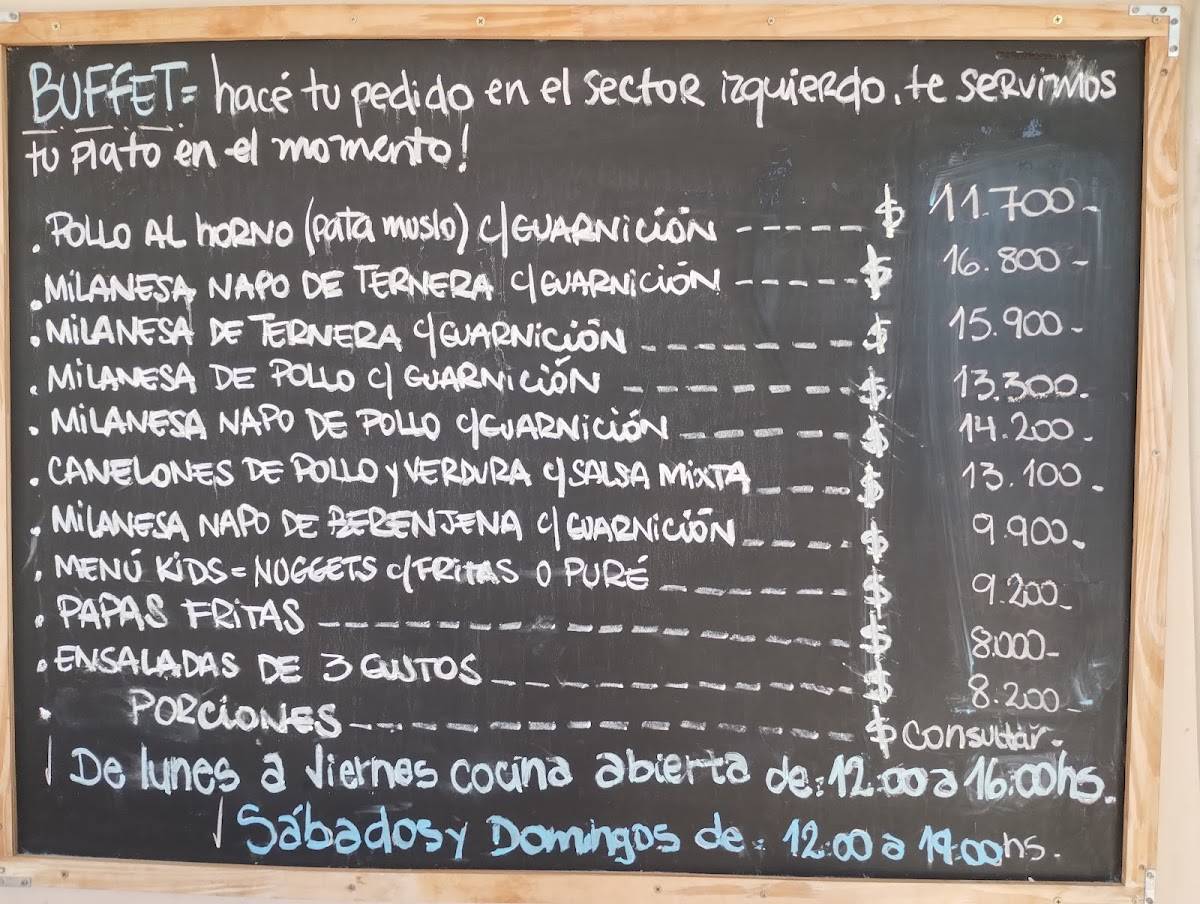 BUFFET= hacé tu pedido en el sector izquierdo. te servimos
tu plato en el momento!
. POLLO AL hORNO (pata muslo) c/GUARNICIÓN ----- $ 11.700-
. MILANESA NAPO DE TERNERA c/GUARNICIÓN ----- $ 16.800-
. MILANESA DE TERNERA c/GUARNICIÓN ------- $ 15.900-
. MILANESA DE POLLO c/ GUARNICIÓN ------- $ 13.300.
. MILANESA NAPO DE POLLO c/GUARNICIÓN ------ $ 14.200-
. CANELONES DE POLLO y VERDURA c/SALSA MIXTA ---- $ 13.100.
. MILANESA NAPO DE BERENJENA c/ GUARNICIÓN ---- $ 9.900.
. MENÚ KIDS= NUGGETS c/FRITAS O PURÉ ------ $ 9.200-
. PAPAS FRITAS --------------- $ 8.000-
. ENSALADAS DE 3 GUSTOS ----------- $ 8.200-
. PORCIONES --------------- $ consultar.
De lunes a Viernes cocina abierta de: 12:00 a 16:00hs.
Sábados y Domingos de: 12:00 a 19:00hs.